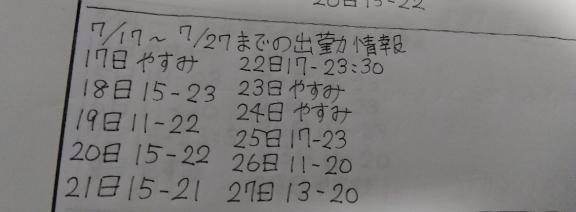 20日15-22
7/17～7/27までの出勤情報
17日 やすみ
18日 15-23
19日 11-22
20日 15-22
21日 15-21
22日 17-23:30
23日 やすみ
24日 やすみ
25日 17-23
26日 11-20
27日 13-20